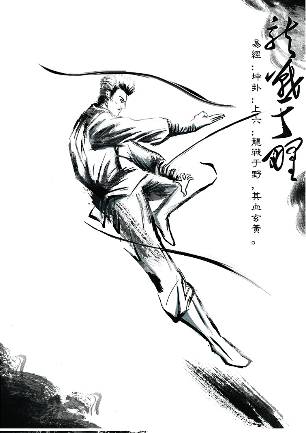 龍戰于野
易經：坤卦：上六：龍戰于野，其血玄黃。